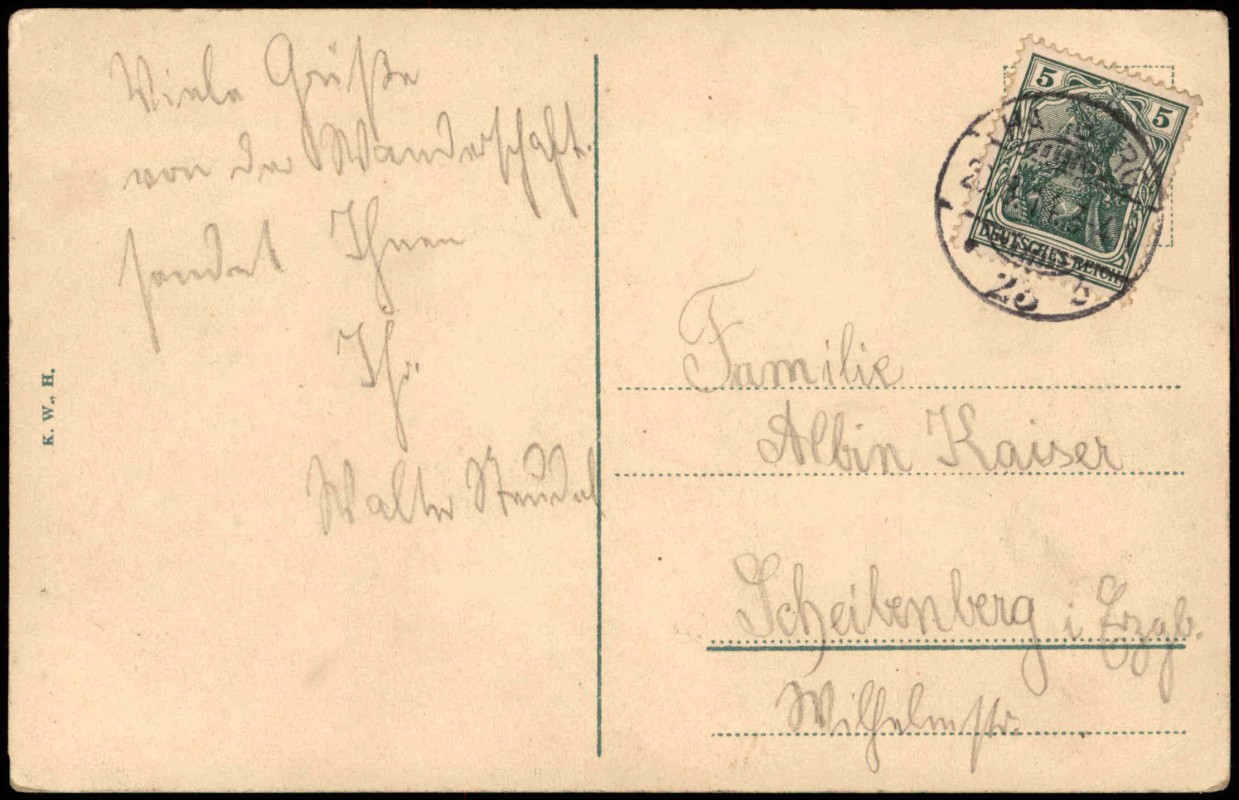 Viele Grüße
von der Wanderschaft.
sendet Ihnen
Ihr
Walter Steudel
K. W., H.
5 5
DEUTSCHES REICH
25 b
Familie
Albin Kaiser
Scheibenberg i Erzgb.
Wilhelmstr.